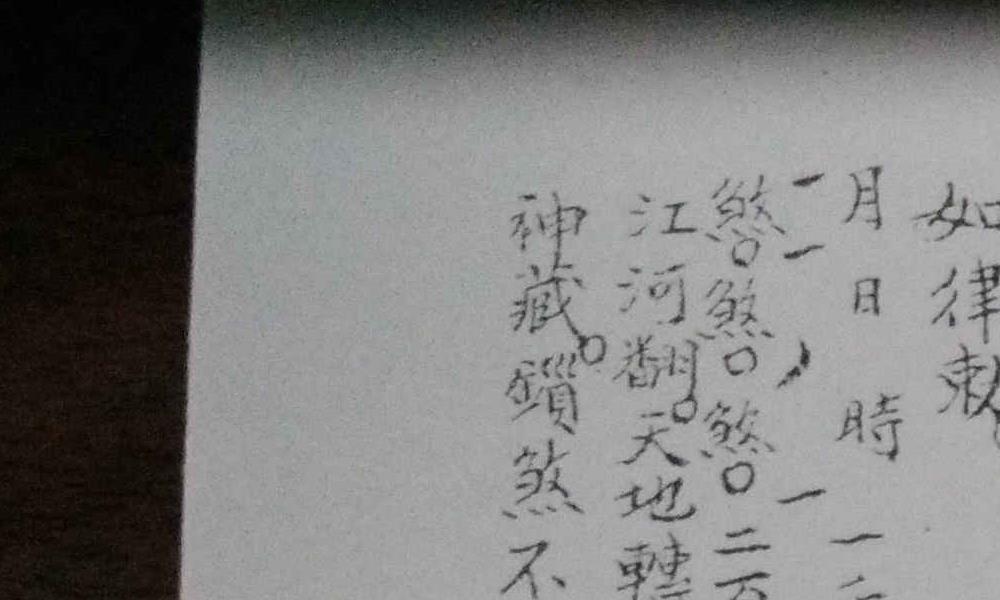 如律敕
月日 時一二
一一、一
煞。煞。煞。二
江河翻。天地轉
神藏。鎖煞不